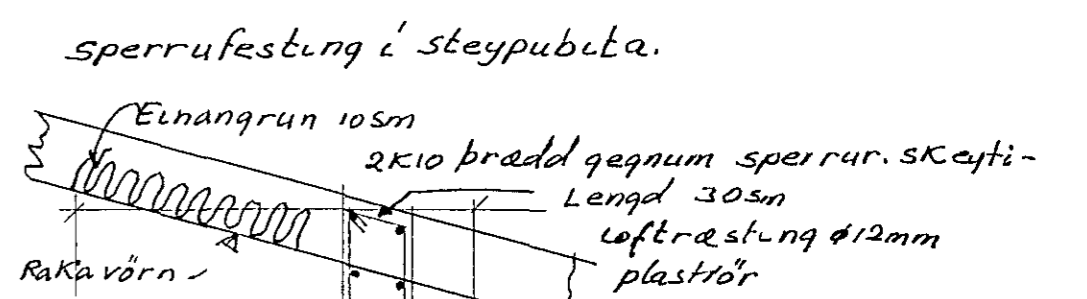 Sperrufesting í steypubita.
Einangrun 10 sm
2K10 þrædd gegnum sperrur. Skeyti-
Lengd 30 sm
Loftræsting ø12mm
plaströr
Rakavörn